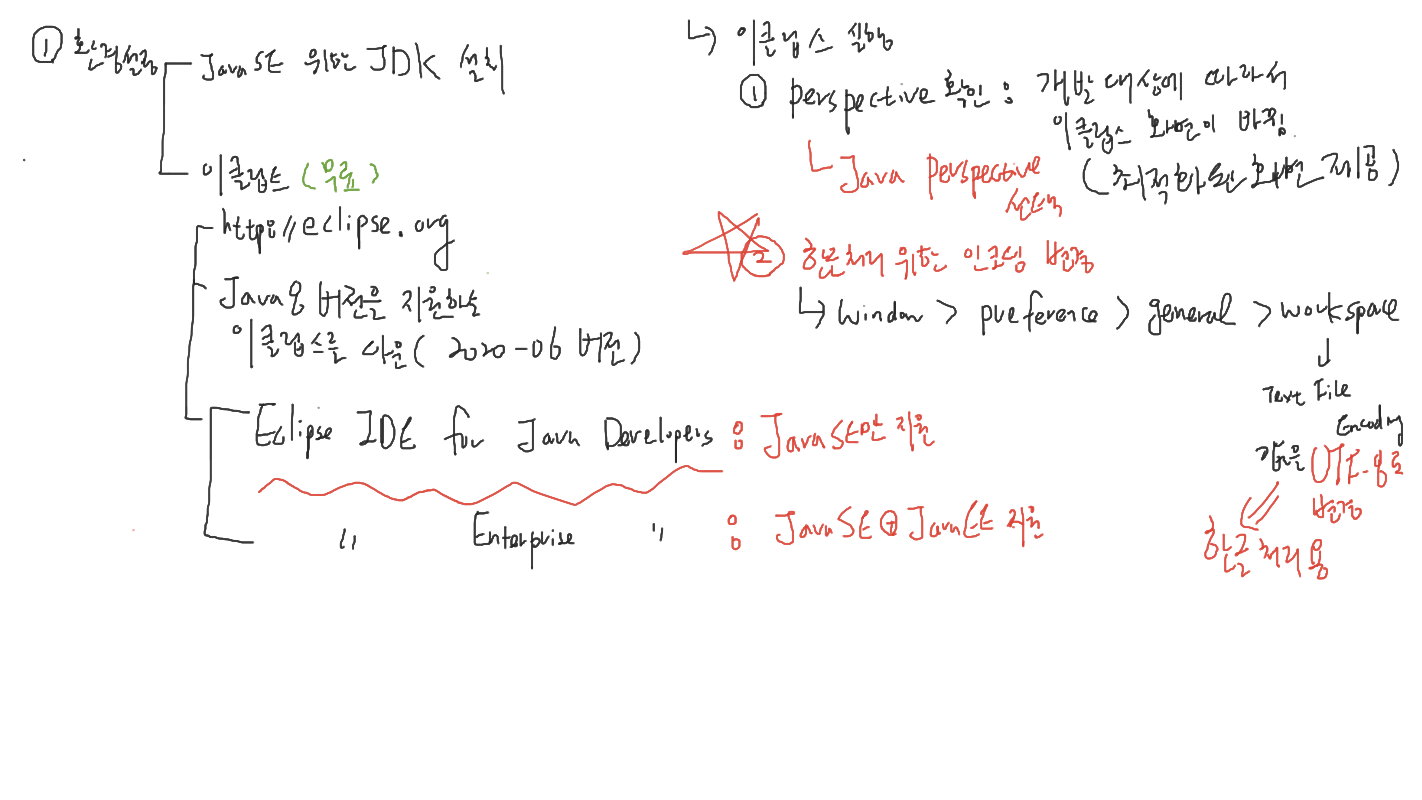 ① 환경설정
JavaSE 위한 JDK 설치
이클립스 (무료)
http://eclipse.org
Java용 버전을 지원하는
이클립스를 다운( 2020-06 버전)
Eclipse IDE for Java Developers : JavaSE만 지원
〃 Enterprise 〃 : JavaSE ⊕ JavaEE 지원
↳ 이클립스 실행
① perspective 확인 : 개발 대상에 따라서
이클립스 화면이 바뀜.
(최적화된 화면 제공)
Java perspective
선택
② 한글처리 위한 인코딩 변경
↳ window > preference > general > workspace
↓
Text File
Encoding
값을 UTF-8로
변경
한글처리용